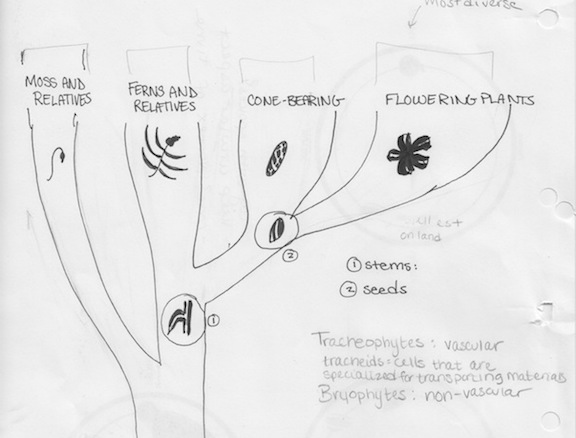 Most diverse
MOSS AND
RELATIVES
FERNS AND
RELATIVES
CONE-BEARING
FLOWERING PLANTS
on land
②
① stems:
② seeds
①
Tracheophytes: vascular
tracheids=cells that are
specialized for transporting materials
Bryophytes: non-vascular